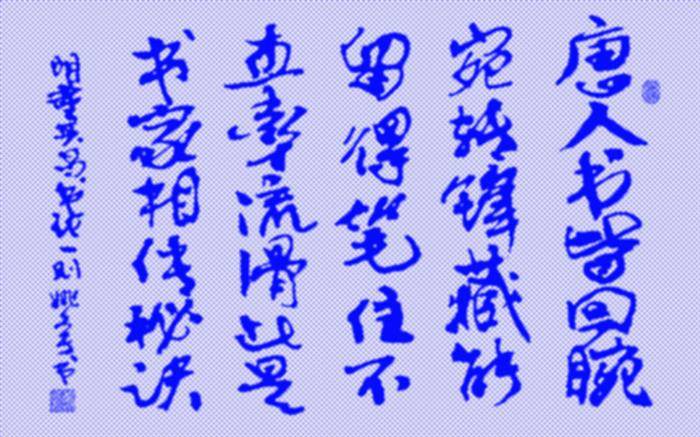 唐人书皆回腕
宛转锋藏能
留得笔住不
直率流滑此是
书家相传秘诀
明董其昌书跋一则姚